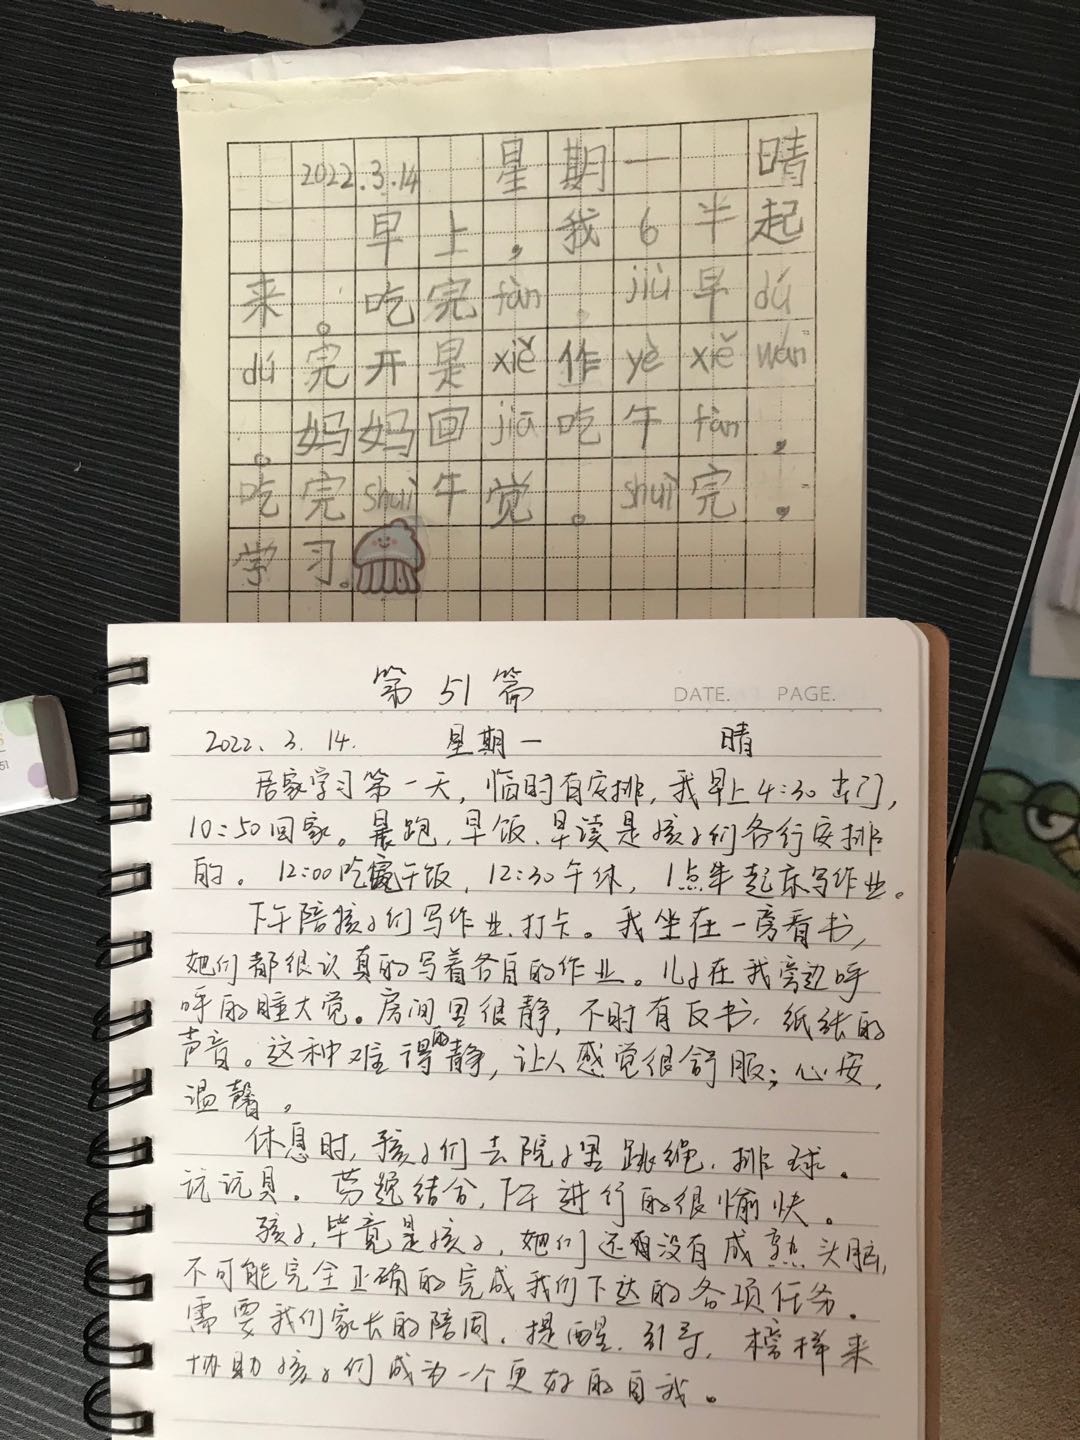 2022.3.14 星期一 晴
早上，我6半起
来。吃完fàn。jiù早dú
dú完开是xiě作yè xiě wán
。妈妈回jiā吃午fàn，
吃完shuì午觉。shuì完，
学习。
第51篇
DATE. PAGE.
2022. 3. 14. 星期一 晴
居家学习第一天，临时有安排，我早上4:30出门，
10:50回家。晨跑、早饭、早读是孩子们各行安排
的。12:00吃午饭，12:30午休，1点半起床写作业。
下午陪孩子们写作业、打卡。我坐在一旁看书，
她们都很认真的写着各自的作业。儿子在我旁边呼
呼的睡大觉。房间里很静，不时有反书、纸张的
声音。这种难得的静，让人感觉很舒服；心安，
温馨。
休息时，孩子们去院子里跳绳、排球、
玩玩具。劳逸结合，下午进行的很愉快。
孩子，毕竟是孩子，她们还没有成熟头脑，
不可能完全正确的完成我们下达的各项任务。
需要我们家长的陪同、提醒、引导，榜样来
协助孩子们成为一个更好的自我。
51